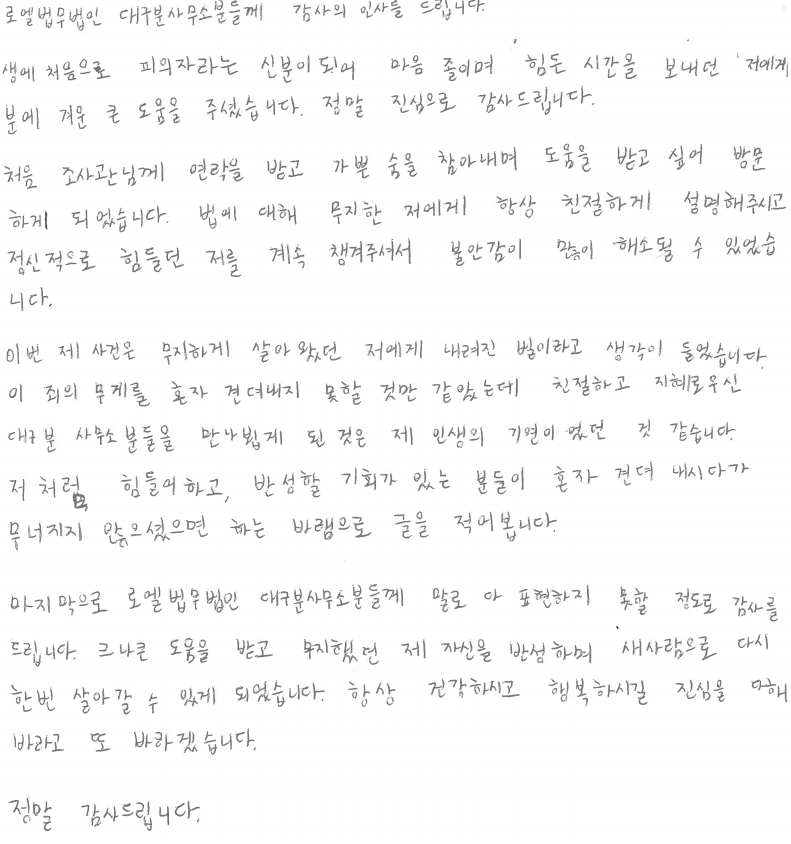 로엘법무법인 대구분사무소분들께 감사의 인사를 드립니다.
생에 처음으로 피의자라는 신분이 되어 마음 졸이며 힘든 시간을 보내던 저에게
분에 겨운 큰 도움을 주셨습니다. 정말 진심으로 감사드립니다.
처음 조사관님께 연락을 받고 가쁜 숨을 참아내며 도움을 받고 싶어 방문
하게 되었습니다. 법에 대해 무지한 저에게 항상 친절하게 설명해주시고
정신적으로 힘들던 저를 계속 챙겨주셔서 불안감이 많이 해소될 수 있었습
니다.
이번 제 사건은 무지하게 살아왔던 저에게 내려진 벌이라고 생각이 들었습니다.
이 죄의 무게를 혼자 견뎌내지 못할 것만 같았는데 친절하고 지혜로우신
대구분 사무소분들을 만나뵙게 된 것은 제 인생의 기연이었던 것 같습니다.
저처럼 힘들어하고, 반성할 기회가 있는 분들이 혼자 견뎌 내시다가
무너지지 않으셨으면 하는 바램으로 글을 적어봅니다.
마지막으로 로엘법무법인 대구분사무소분들께 말로 다 표현하지 못할 정도로 감사를
드립니다. 크나큰 도움을 받고 무지했던 제 자신을 반성하며 새사람으로 다시
한번 살아갈 수 있게 되었습니다. 항상 건강하시고 행복하시길 진심을 다해
바라고 또 바라겠습니다.
정말 감사드립니다.